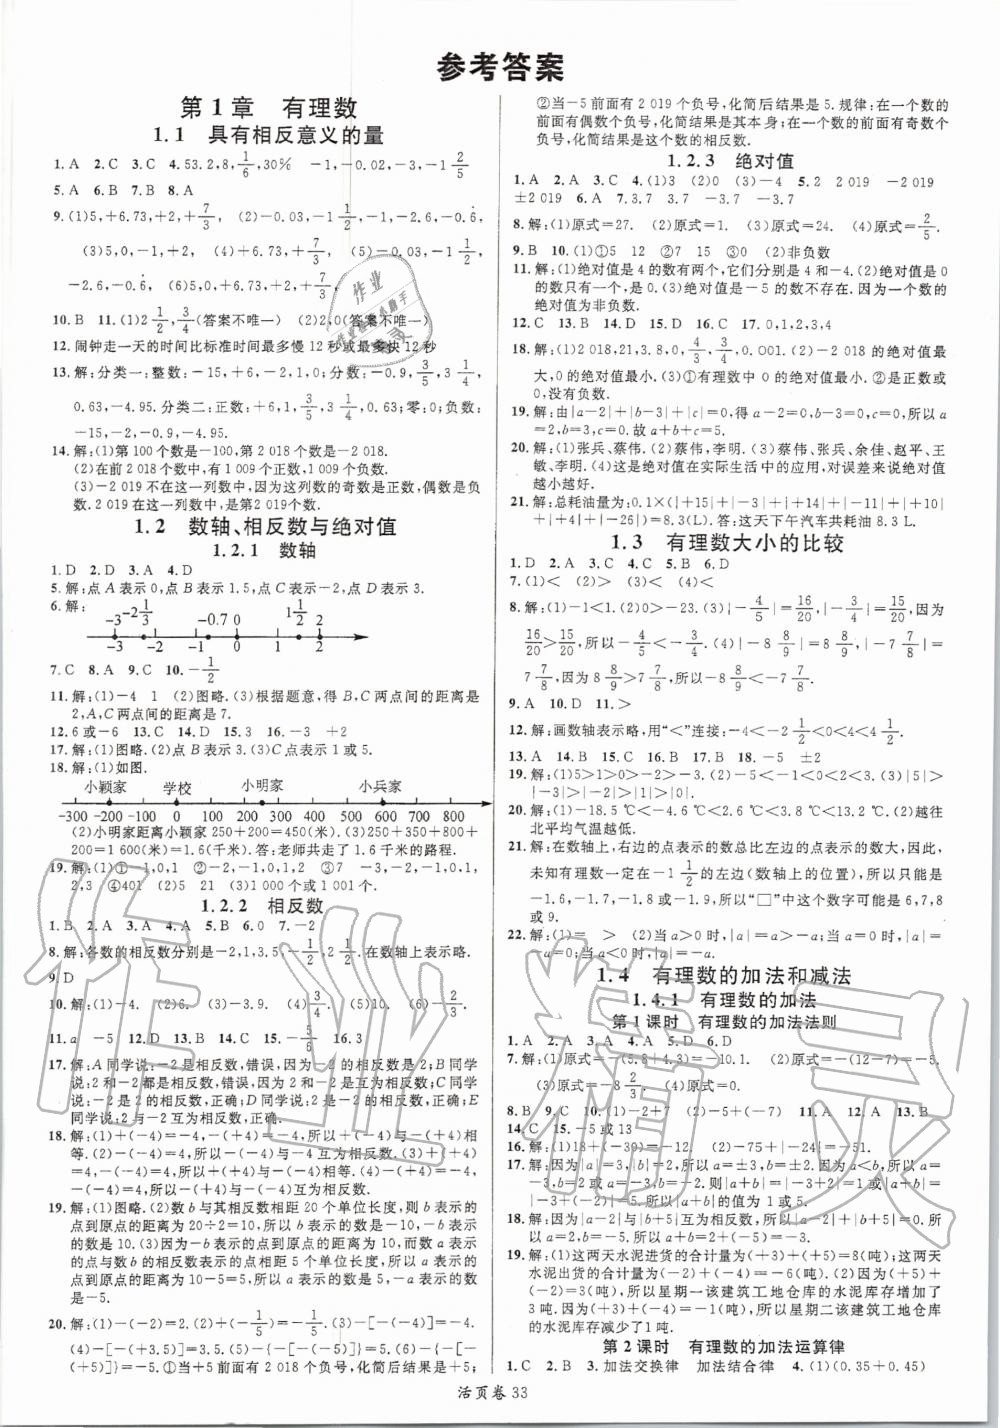 参考答案
第1章 有理数
1.1 具有相反意义的量
1.A 2.C 3.C 4.53.2,8,1/6,30% -1,-0.02,-3,-1 2/5
5.A 6.B 7.B 8.A
9.(1)5,+6.73,+2,+7/3 (2)-0.03,-1 1/2,-1,-2.6,-0.6̇,
(3)5,0,-1,+2 (4)+6.73,+7/3 (5)-0.03,-1 1/2,
-2.6,-0.6̇ (6)6.73,+7/3
10.B 11.(1)2 1/2,3/4(答案不唯一) (2)2,0(答案不唯一)
12.闹钟走一天的时间比标准时间最多慢12秒或最多快12秒
13.解:分类一:整数:-15,+6,-2,1,0;分数:-0.9,3/5,3 1/4,
0.63,-4.95.分类二:正数:+6,1,3/5,3 1/4,0.63;零:0;负数:
-15,-2,-0.9,-4.95.
14.解:(1)第100个数是-100,第2 018个数是-2 018.
(2)在前2 018个数中,有1 009个正数,1 009个负数.
(3)-2 019不在这一列数中,因为这列数的奇数是正数,偶数是负
数.2 019在这一列数中,是第2 019个数.
1.2 数轴、相反数与绝对值
1.2.1 数轴
1.D 2.D 3.A 4.D
5.解:点A表示0,点B表示1.5,点C表示-2,点D表示3.
6.解:
-3 -2 1/3 -0.7 0 1 1/2 2
-3 -2 -1 0 1 2
7.C 8.A 9.C 10.-1/2
11.解:(1)-4 1 (2)图略.(3)根据题意,得B,C两点间的距离是
2,A,C两点间的距离是7.
12.6或-6 13.C 14.D 15.3 16.-3 +2
17.解:(1)图略.(2)点B表示3.(3)C点表示1或5.
18.解:(1)如图.
小颖家 学校 小明家 小兵家
-300 -200 -100 0 100 200 300 400 500 600 700 800
(2)小明家距离小颖家250+200=450(米).(3)250+350+800+
200=1 600(米)=1.6(千米).答:老师共走了1.6千米的路程.
19.解:(1)①-1,0,1 ②-2,-1,0,1,2 ③7 -3,-2,-1,0,1,
2,3 ④401 (2)5 21 (3)1 000个或1 001个.
1.2.2 相反数
1.B 2.A 3.A 4.A 5.B 6.0 7.-2
8.解:各数的相反数分别是-2,1,3.5,-1/2,2 1/2.在数轴上表示略.
9.D
10.解:(1)-4. (2)6. (3)-3.9. (4)3/4. (5)10. (6)-5.
11.a -5 12.D 13.B 14.C 15.-5/6 16.3
17.解:A同学说:-2是相反数,错误,因为2和-2互为相反数;B同
学说:2和-2都是相反数,错误,因为2和-2互为相反数;C同学
说:-2是2的相反数,正确;D同学说:2是-2的相反数,正确;E
同学说:2与-2互为相反数,正确.
18.解:(1)+(-4)=-4,-(+4)=-4,所以+(-4)与-(+4)相
等.(2)-(-4)=4,-(+4)=-4,所以互为相反数.(3)+(+4)
=4,-(-4)=4,所以+(+4)与-(-4)相等.(4)-(-4)=
4,+(-4)=-4,所以-(-4)与+(-4)互为相反数.
19.解:(1)图略.(2)数b与其相反数相距20个单位长度,则b表示的
点到原点的距离为20÷2=10,所以b表示的数是-10,-b表示
的数是10.(3)因为-b表示的点到原点的距离为10,而数a表示
的点与数b的相反数表示的点相距5个单位长度,所以a表示的
点到原点的距离为10-5=5,-a表示的数是5,所以a表示的数
是-5.
20.解:(1)-(-2)=2.(2)+(-1/5)=-1/5.(3)-[-(-4)]=-4.
(4)-[-(+3.5)]=3.5.(5)-{-[-(-5)]}=5.(6)-{-[-
(+5)]}=-5.①当+5前面有2 018个负号,化简后结果是+5;
②当-5前面有2 019个负号,化简后结果是5.规律:在一个数的
前面有偶数个负号,化简其结果是其本身;在一个数的前面有奇数个
负号,化简其结果是这个数的相反数.
1.2.3 绝对值
1.A 2.A 3.C 4.(1)3 (2)0 (3)-4 5.2 2 019 -2 019
±2 019 6.A 7.3.7 3.7 -3.7 -3.7
8.解:(1)原式=27. (2)原式=1. (3)原式=24. (4)原式=2/5.
9.B 10.(1)①5 12 ②7 15 ③0 (2)非负数
11.解:(1)绝对值是4的数有两个,它们分别是4和-4.(2)绝对值是0
的数只有一个,是0.(3)绝对值是-5的数不存在.因为一个数的
绝对值为非负数.
12.C 13.B 14.D 15.D 16.C 17.0,1,2,3,4
18.解:(1)2 018,21,3.8,0,4/3,3/4,0.001.(2)-2 018的绝对值最
大,0的绝对值最小.(3)①有理数中0的绝对值最小.②是正数或
0,没有负数.
19.解:由|a-2|+|b-3|+|c|=0,得a-2=0,b-3=0,c=0,所以a
=2,b=3,c=0.故a+b+c=5.
20.解:(1)张兵、蔡伟.(2)蔡伟,李明.(3)蔡伟、张兵、余佳、赵平、王
敏、李明.(4)这是绝对值在实际生活中的应用,对误差来说绝对值
越小越好.
21.解:总耗油量为:0.1×(|+15|+|-3|+|+14|+|-11|+|+10|
+|+4|+|-26|)=8.3(L).答:这天下午汽车共耗油8.3 L.
1.3 有理数大小的比较
1.D 2.A 3.C 4.C 5.B 6.D
7.(1)< (2)> (3)< (4)<
8.解:(1)-1<1.(2)0>-23.(3)|-4/5|=16/20,|-3/4|=15/20,因为
16/20>15/20,所以-4/5<-3/4.(4)|-8 8/9|=8 8/9,|-7 7/8|=
7 7/8,因为8 8/9>7 7/8,所以-8 8/9<-7 7/8.
9.A 10.D 11.>
12.解:画数轴表示略,用“<”连接:-4<-2 1/2<0<2 1/2<4<4 1/2.
13.A 14.B 15.C 16.B 17.B 18.-5 ±2
19.解:(1)5>1>0>-2>-5.(2)-5<-1<0<2<5.(3)|5|>
|-3|>|-2|>|-1|>|0|.
20.解:(1)-18.5 ℃<-4 ℃<-1.6 ℃<2.5 ℃<3.8 ℃.(2)越往
北平均气温越低.
21.解:在数轴上,右边的点表示的数总比左边的点表示的数大.因此,
未知有理数一定在-1 1/2的左边(数轴上的位置),所以只能是
-1.6,-1.7,-1.8或-1.9,所以“□”中这个数字可能是6,7,8
或9.
22.解:(1)= > (2)当a>0时,|a|=a>-a;当a=0时,|a|=
-a;当a<0时,|a|=-a.
1.4 有理数的加法和减法
1.4.1 有理数的加法
第1课时 有理数的加法法则
1.A 2.A 3.A 4.C 5.D 6.D
7.解:(1)原式=-(5.8+4.3)=-10.1. (2)原式=-(12-7)=-5.
(3)原式=-8 2/3. (4)原式=0.
8.B 9.C 10.(1)-2+7 (2)-5+(-7) 11.A 12.A 13.B
14.C 15.-5或13
16.解:(1)18+(-30)=-12. (2)-75+24=-51.
17.解:因为|a|=3,|b|=2,所以a=±3,b=±2.因为a<b,所以a=
-3,b=-2或a=-3,b=2.则|a+b|=|-3+2|=1或|a+b|=
|-3+(-2)|=|-5|=5.所以|a+b|的值为1或5.
18.解:因为|a-2|与|b+5|互为相反数,所以|a-2|+|b+5|=0,所
以a=2,b=-5,所以a+b=2+(-5)=-3.
19.解:(1)这两天水泥进货的合计量为(+3)+(+5)=8(吨);这两天
水泥出货的合计量为(-2)+(-4)=-6(吨).(2)因为(+5)+
(-2)=3(吨),所以星期一该建筑工地仓库的水泥库存增加了
3吨.因为(+3)+(-4)=-1(吨),所以星期二该建筑工地仓库
的水泥库存减少了1吨.
第2课时 有理数的加法运算律
1.C 2.B 3.加法交换律 加法结合律 4.(1)(0.35+0.45)
活页卷 33